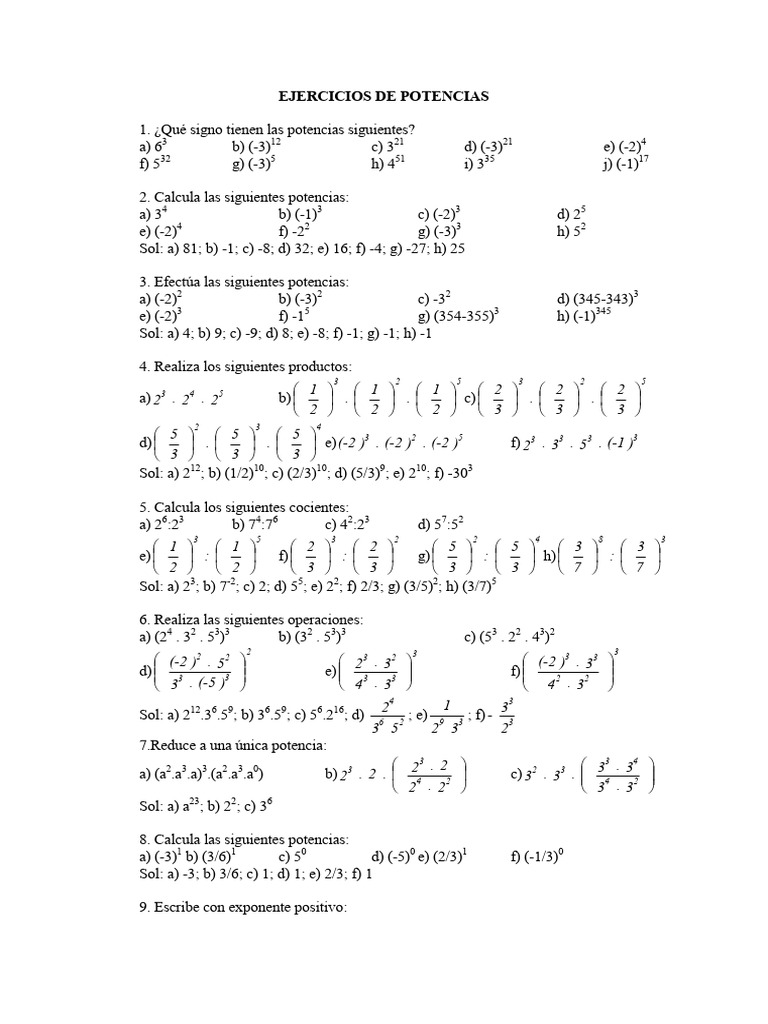 EJERCICIOS DE POTENCIAS
1. ¿Qué signo tienen las potencias siguientes?
a) 6³ b) (-3)¹² c) 3²¹ d) (-3)²¹ e) (-2)⁴
f) 5³² g) (-3)⁵ h) 4⁵¹ i) 3³⁵ j) (-1)¹⁷
2. Calcula las siguientes potencias:
a) 3⁴ b) (-1)³ c) (-2)³ d) 2⁵
e) (-2)⁴ f) -2² g) (-3)³ h) 5²
Sol: a) 81; b) -1; c) -8; d) 32; e) 16; f) -4; g) -27; h) 25
3. Efectúa las siguientes potencias:
a) (-2)² b) (-3)² c) -3² d) (345-343)³
e) (-2)³ f) -1⁵ g) (354-355)³ h) (-1)³⁴⁵
Sol: a) 4; b) 9; c) -9; d) 8; e) -8; f) -1; g) -1; h) -1
4. Realiza los siguientes productos:
a) 2³ . 2⁴ . 2⁵ b) (1/2)³ . (1/2)² . (1/2)⁵ c) (2/3)³ . (2/3)² . (2/3)⁵
d) (5/3)² . (5/3)³ . (5/3)⁴ e) (-2)³ . (-2)² . (-2)⁵ f) 2³ . 3³ . 5³ . (-1)³
Sol: a) 2¹²; b) (1/2)¹⁰; c) (2/3)¹⁰; d) (5/3)⁹; e) 2¹⁰; f) -30³
5. Calcula los siguientes cocientes:
a) 2⁶:2³ b) 7⁴:7⁶ c) 4²:2³ d) 5⁷:5²
e) (1/2)³ : (1/2)⁵ f) (2/3)³ : (2/3)² g) (5/3)² : (5/3)⁴ h) (3/7)⁸ : (3/7)³
Sol: a) 2³; b) 7⁻²; c) 2; d) 5⁵; e) 2²; f) 2/3; g) (3/5)²; h) (3/7)⁵
6. Realiza las siguientes operaciones:
a) (2⁴ . 3² . 5³)³ b) (3² . 5³)³ c) (5³ . 2² . 4³)²
d) ((-2)² . 5² / 3³ . (-5)³)² e) (2³ . 3² / 4³ . 3³)³ f) ((-2)³ . 3³ / 4² . 3²)³
Sol: a) 2¹².3⁶.5⁹; b) 3⁶.5⁹; c) 5⁶.2¹⁶; d) 2⁴ / 3⁶ 5²; e) 1 / 2⁹ 3³; f) - 3³ / 2³
7.Reduce a una única potencia:
a) (a².a³.a)³.(a².a³.a⁰) b) 2³ . 2 . (2³ . 2 / 2⁴ . 2²) c) 3² . 3³ . (3³ . 3⁴ / 3⁴ . 3²)
Sol: a) a²³; b) 2²; c) 3⁶
8. Calcula las siguientes potencias:
a) (-3)¹ b) (3/6)¹ c) 5⁰ d) (-5)⁰ e) (2/3)¹ f) (-1/3)⁰
Sol: a) -3; b) 3/6; c) 1; d) 1; e) 2/3; f) 1
9. Escribe con exponente positivo: